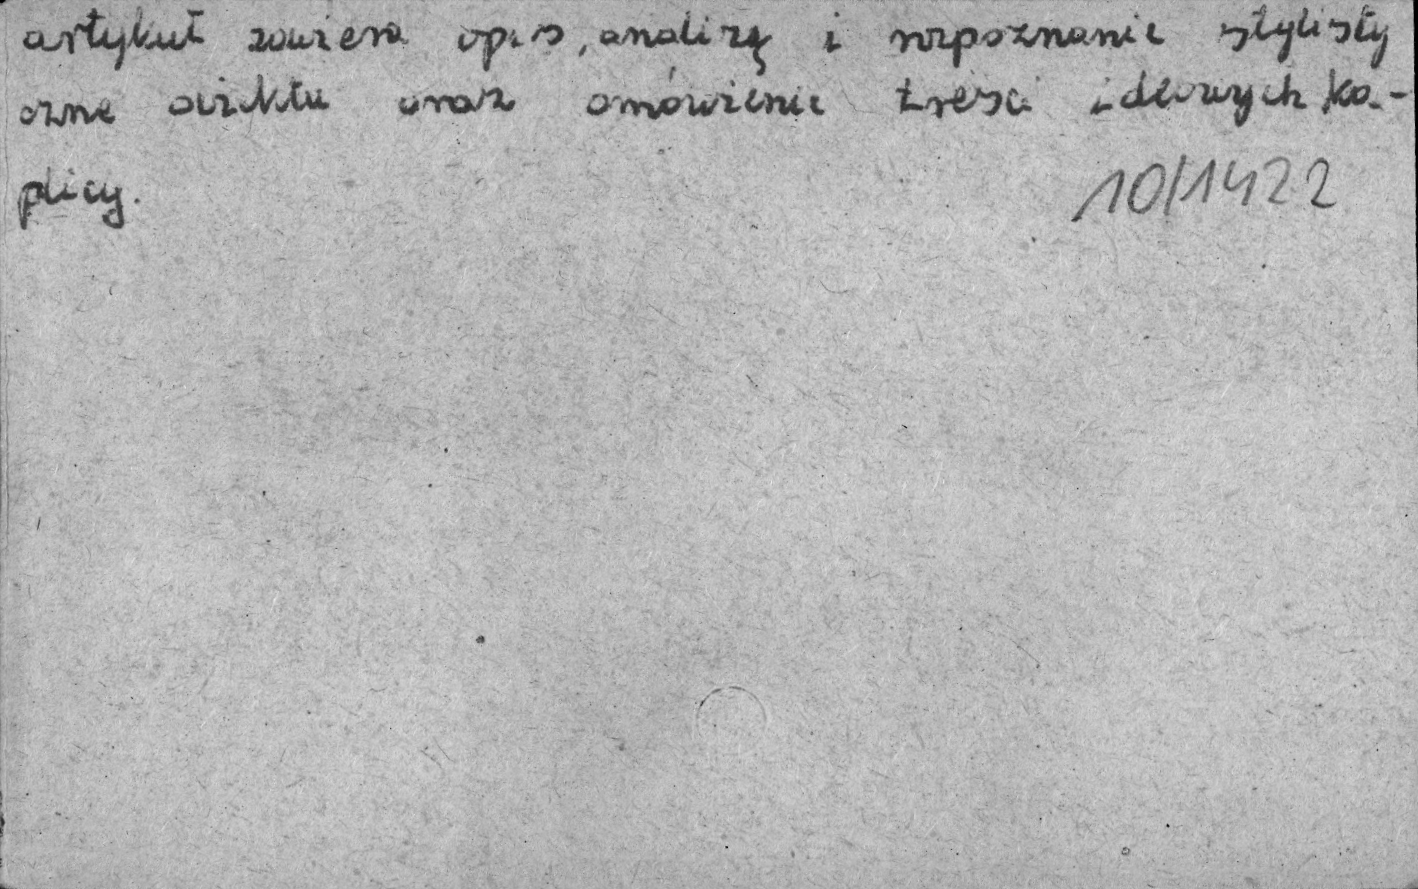 artykuł zawiera opis, analizę i rozpoznanie stylisty
czne obiektu oraz omówienie treści ideowych ka-
plicy.
10/1422